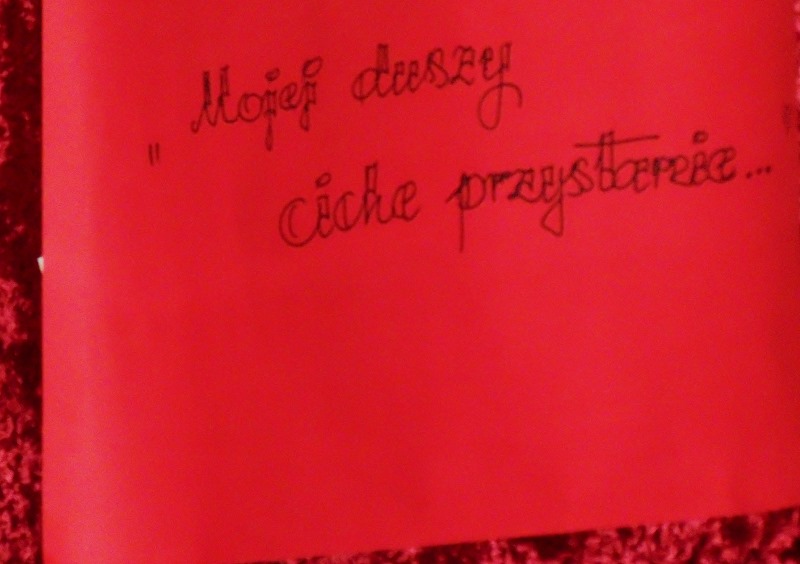 „ Mojej duszy
ciche przystanie... "